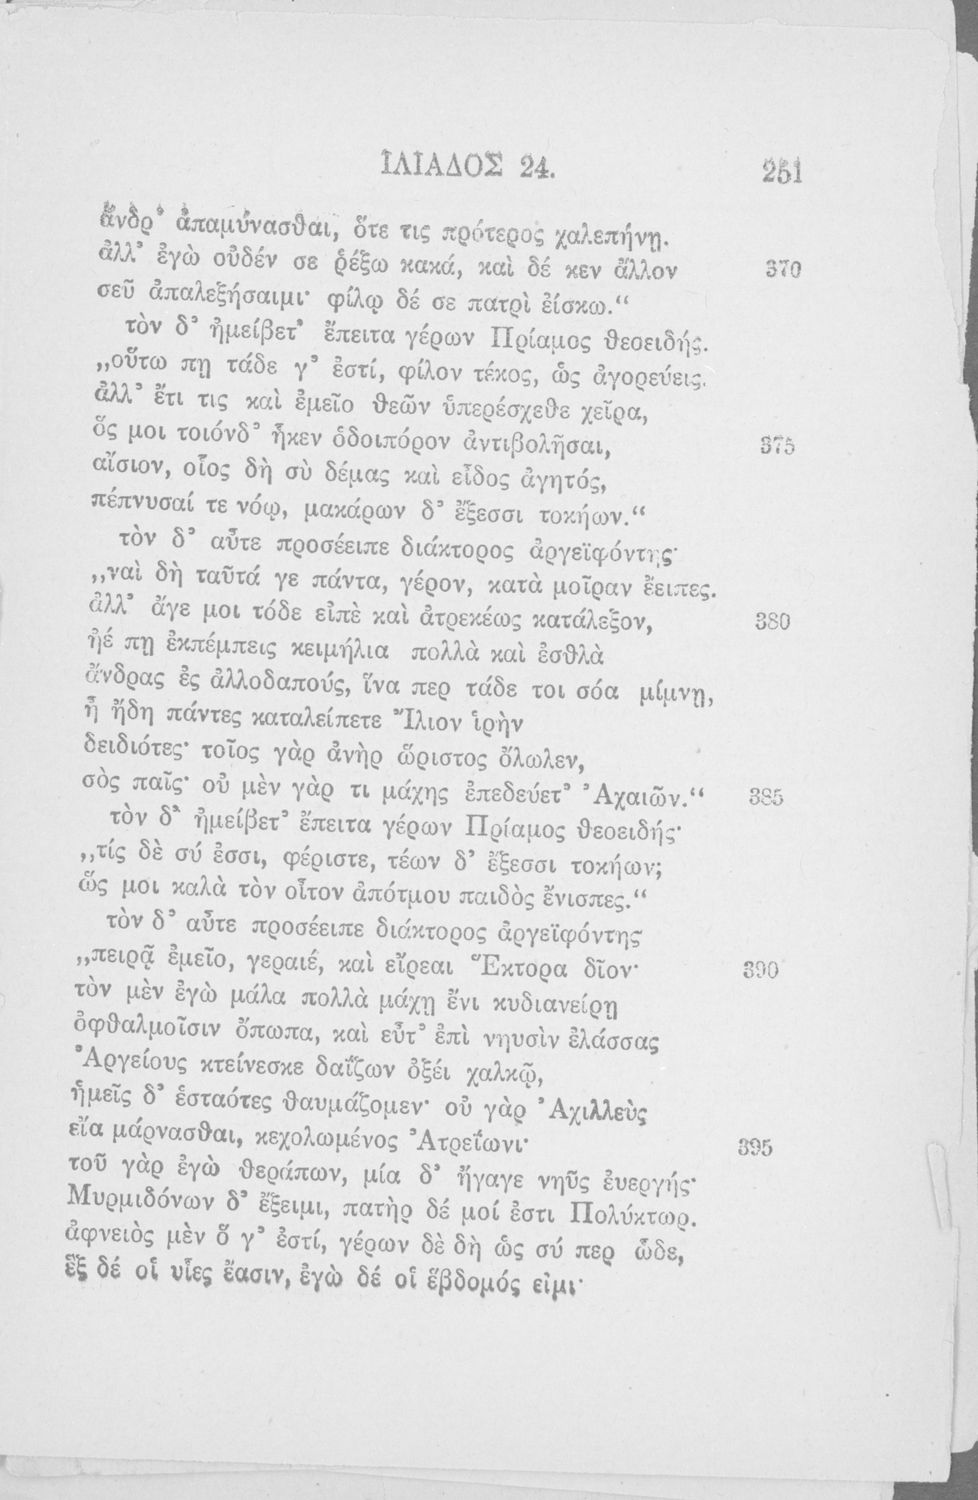 ΙΛΙΑΔΟΣ 24. 251
ἄνδρ᾽ ἀπαμύνασθαι, ὅτε τις πρότερος χαλεπήνῃ.
ἀλλ᾽ ἐγὼ οὐδέν σε ῥέξω κακά, καὶ δέ κεν ἄλλον 370
σεῦ ἀπαλεξήσαιμι· φίλῳ δέ σε πατρὶ ἐίσκω.“
τὸν δ᾽ ἠμείβετ᾽ ἔπειτα γέρων Πρίαμος θεοειδής.
„οὕτω πῃ τάδε γ᾽ ἐστί, φίλον τέκος, ὡς ἀγορεύεις.
ἀλλ᾽ ἔτι τις καὶ ἐμεῖο θεῶν ὑπερέσχεθε χεῖρα,
ὅς μοι τοιόνδ᾽ ἧκεν ὁδοιπόρον ἀντιβολῆσαι, 375
αἴσιον, οἷος δὴ σὺ δέμας καὶ εἶδος ἀγητός,
πέπνυσαί τε νόῳ, μακάρων δ᾽ ἔξεσσι τοκήων.“
τὸν δ᾽ αὖτε προσέειπε διάκτορος ἀργεϊφόντης·
„ναὶ δὴ ταῦτά γε πάντα, γέρον, κατὰ μοῖραν ἔειπες.
ἀλλ᾽ ἄγε μοι τόδε εἰπὲ καὶ ἀτρεκέως κατάλεξον, 380
ἠέ πῃ ἐκπέμπεις κειμήλια πολλὰ καὶ ἐσθλὰ
ἄνδρας ἐς ἀλλοδαπούς, ἵνα περ τάδε τοι σόα μίμνῃ,
ἦ ἤδη πάντες καταλείπετε Ἴλιον ἱρὴν
δειδιότες· τοῖος γὰρ ἀνὴρ ὤριστος ὄλωλεν,
σὸς παῖς· οὐ μὲν γὰρ τι μάχης ἐπεδεύετ᾽ Ἀχαιῶν.“ 385
τὸν δ᾽ ἠμείβετ᾽ ἔπειτα γέρων Πρίαμος θεοειδής·
„τίς δὲ σύ ἐσσι, φέριστε, τέων δ᾽ ἔξεσσι τοκήων;
ὥς μοι καλὰ τὸν οἶτον ἀπότμου παιδὸς ἔνισπες.“
τὸν δ᾽ αὖτε προσέειπε διάκτορος ἀργεϊφόντης
„πειρᾷ ἐμεῖο, γεραιέ, καὶ εἴρεαι Ἕκτορα δῖον· 390
τὸν μὲν ἐγὼ μάλα πολλὰ μάχῃ ἔνι κυδιανείρῃ
ὀφθαλμοῖσιν ὄπωπα, καὶ εὖτ᾽ ἐπὶ νηυσὶν ἐλάσσας
Ἀργείους κτείνεσκε δαΐζων ὀξέι χαλκῷ,
ἡμεῖς δ᾽ ἑσταότες θαυμάζομεν· οὐ γὰρ Ἀχιλλεὺς
εἴα μάρνασθαι, κεχολωμένος Ἀτρεΐωνι· 395
τοῦ γὰρ ἐγὼ θεράπων, μία δ᾽ ἤγαγε νηῦς ἐυεργής·
Μυρμιδόνων δ᾽ ἔξειμι, πατὴρ δέ μοί ἐστι Πολύκτωρ.
ἀφνειὸς μὲν ὅ γ᾽ ἐστί, γέρων δὲ δὴ ὡς σύ περ ὧδε,
ἓξ δέ οἱ υἷες ἔασιν, ἐγὼ δέ οἱ ἕβδομός εἰμι·